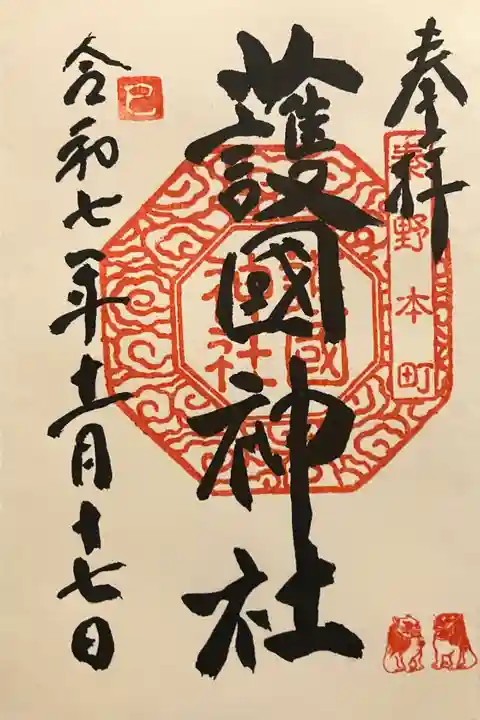 奉拝
秦野本町
護國神社
護國
神社
令和七年十一月十七日
巳